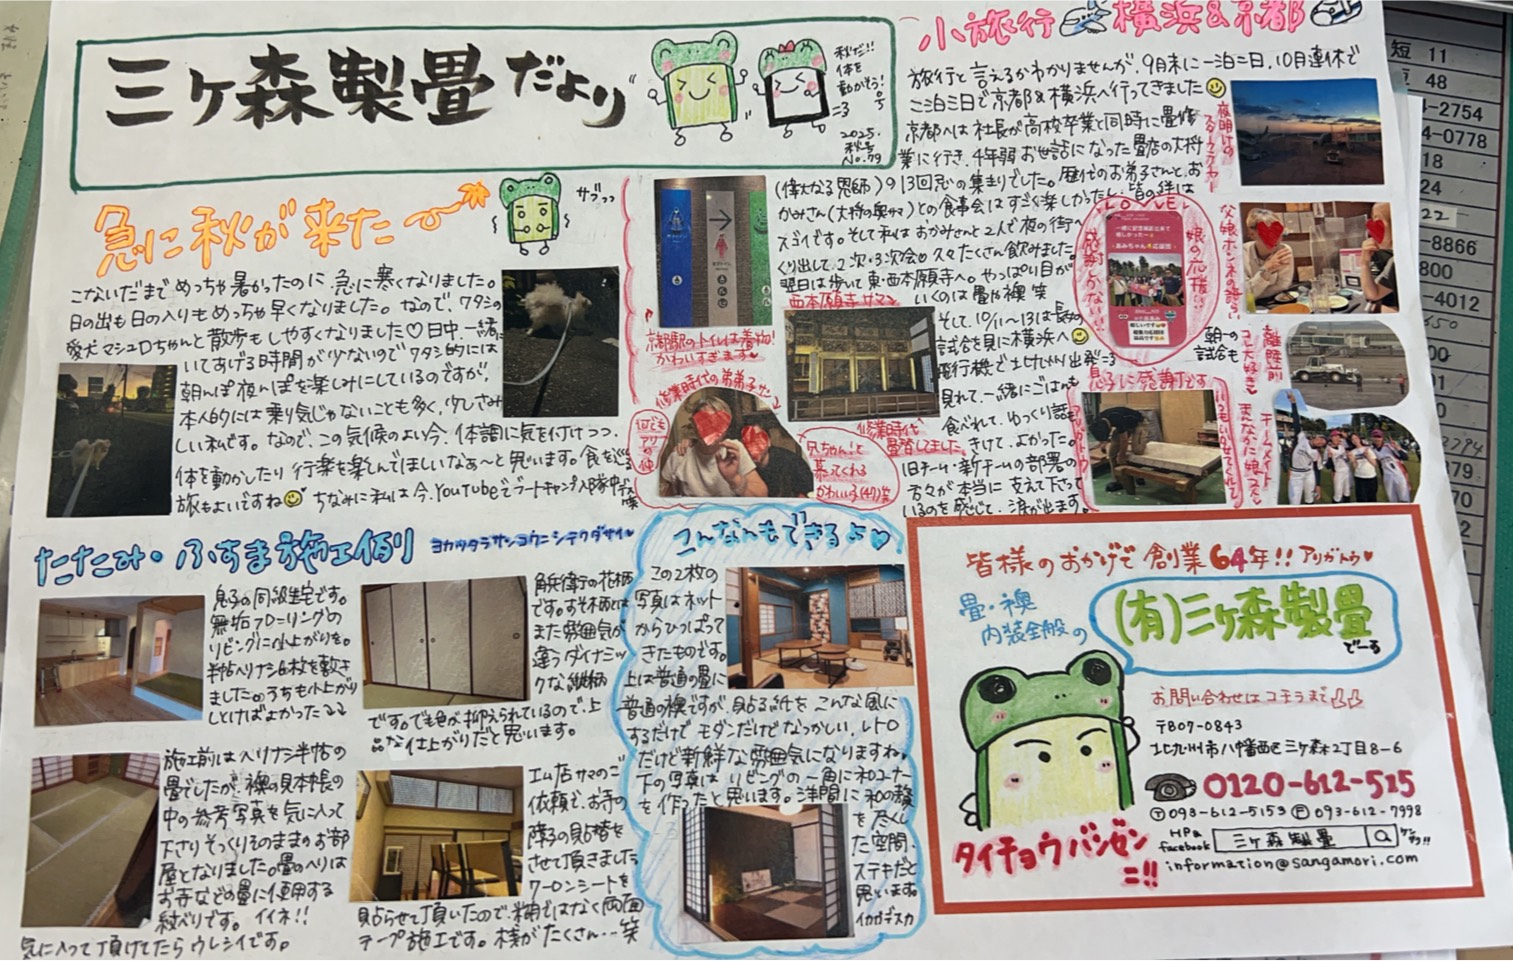 三ヶ森製畳だより
秋だ!!
体を
動かそう!
2025.
秋号
No.79
急に秋が来た
サブッッ
こないだまでめっちゃ暑かったのに、急に寒くなりました。
日の出も日の入りもめっちゃ早くなりました。なので、ワタシの
愛犬マシュロちゃんと散歩もしやすくなりました♡日中、一緒に
いてあげる時間が少ないのでワタシ的には
朝んぽ夜んぽを楽しみにしているのですが、
本人的には乗り気じゃないことも多く、少しさみ
しい私です。なので、この気候のよい今、体調に気を付けつつ、
体を動かしたり行楽を楽しんでほしいなぁ〜と思います。食をめぐる
旅もよいですね ちなみに私は今、YouTubeでブートキャンプ入隊中です
笑
小旅行 横浜&京都
旅行と言えるかわかりませんが、9月末に一泊二日、10月連休で
二泊三日で京都&横浜へ行ってきました
京都へは社長が高校卒業と同時に畳修
業に行き、4年弱お世話になった畳店の大将
(偉大なる恩師)の13回忌の集まりでした。歴代のお弟子さんと、お
かみさん(大将の奥サマ)との食事会はすごく楽しかったし、皆の絆は
スゴイです。そして私はおかみさんと2人で夜の街へ
くり出して、2次・3次会♡久々たくさん飲みました。
翌日は歩いて東・西本願寺へ。やっぱり目が
いくのは畳や襖 笑
西本願寺サマ
そして、10/11〜13は長女の
試合を見に横浜へ
飛行機で
見れて、一緒にごはんも
食べれて、ゆっくり話も
きけて、よかった。
旧チーム・新チームの部署の
方々が本当に支えて下さって
いるのを感じて、涙が出ます。
夜明けの
スターフライヤー
娘ホンネの語らい
LOVE
娘の応援!!
感謝しかない!!
朝一の
試合も
離陸前
コレ大好き♡
京都駅のトイレは着物!
かわいすぎます♡
修業時代の弟弟子サン
何でも
アリの仲
兄ちゃん!と
慕ってくれる
かわいい子(47)笑
修業時代
畳替しました。
息子に感謝です
チームメイト
まんなかに娘
たたみ・ふすま施工例り
ヨカッタラサンコウニシテクダサイ〜
息子の同級生宅です。
無垢フローリングの
リビングに小上がりを。
半帖ヘリナシ6枚を敷き
ました。うちも小上がり
しとけばよかったココ
角兵衛での花柄
です。すそ柄とは
また雰囲気が
違うダイナミッ
クな縦柄
です。でも色が抑えられているので、上
品な仕上がりだと思います。
施工前はヘリナシ半帖の
畳でしたが、襖の見本帳の
中の参考写真を気に入って
下さりそっくりそのままのお部
屋となりました。畳のへりは
お寺などの畳に使用する
紋べりです。イイネ!!
気に入って頂けてたらウレシイです。
工ム店サマのご
依頼で、お寺の
障子の貼替を
させて頂きました
ワーロンシートを
貼らせて頂いたので、糊ではなく両面
テープ施工です。桟がたくさん…笑
こんなんもできるよ♡
この2枚の
写真はネット
からひっぱって
きたものです。
上は普通の畳に
普通の襖ですが、貼る紙をこんな風に
するだけでモダンだけどなつかしい、レトロ
だけど新鮮な雰囲気になりますね。
下の写真はリビングの一角に和コーナー
を作ったと思います。洋間に和の贅
を尽くし
た空間、
ステキだと
思います。
イカガデスカ
皆様のおかげで創業64年!!アリガトウ♥
畳・襖
内装全般の
(有)三ヶ森製畳
でーる
お問い合わせはコチラまで
〒807-0843
北九州市八幡西区三ヶ森2丁目8-6
0120-612-515
Ⓣ093-612-5153 Ⓕ093-612-7998
HP&
facebook
三ヶ森製畳
information@sangamori.com
タイチョウバンゼン
ニ!!
短 11
48
-2754
-0778
18
24
22
-8866
800
-4012